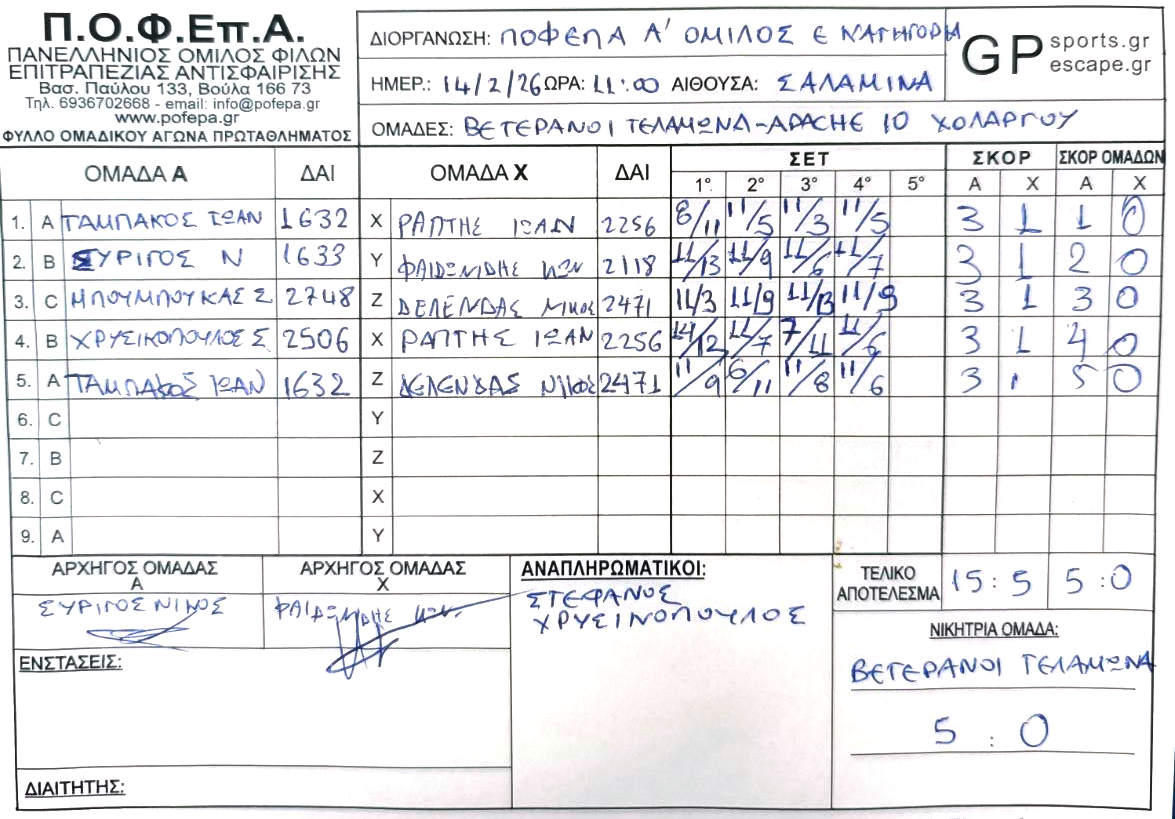 Π.Ο.Φ.Επ.Α.
ΠΑΝΕΛΛΗΝΙΟΣ ΟΜΙΛΟΣ ΦΙΛΩΝ
ΕΠΙΤΡΑΠΕΖΙΑΣ ΑΝΤΙΣΦΑΙΡΙΣΗΣ
Βασ. Παύλου 133, Βούλα 166 73
Τηλ. 6936702668 - email: info@pofepa.gr
www.pofepa.gr
ΦΥΛΛΟ ΟΜΑΔΙΚΟΥ ΑΓΩΝΑ ΠΡΩΤΑΘΛΗΜΑΤΟΣ
ΔΙΟΡΓΑΝΩΣΗ: ΠΟΦΕΠΑ Α' ΟΜΙΛΟΣ Ε ΚΑΤΗΓΟΡΙΑ
ΗΜΕΡ.: 14/2/26 ΩΡΑ: 11:00 ΑΙΘΟΥΣΑ: ΣΑΛΑΜΙΝΑ
ΟΜΑΔΕΣ: ΒΕΤΕΡΑΝΟΙ ΤΕΛΑΜΩΝΑ-APACHE 10 ΧΟΛΑΡΓΟΥ
GP sports.gr
escape.gr
ΟΜΑΔΑ Α ΔΑΙ ΟΜΑΔΑ Χ ΔΑΙ ΣΕΤ ΣΚΟΡ ΣΚΟΡ ΟΜΑΔΩΝ
1° 2° 3° 4° 5° Α Χ Α Χ
1. A ΤΑΜΠΑΚΟΣ ΙΩΑΝ 1632 X ΡΑΠΤΗΣ ΙΩΑΝ 2256 8/11 11/5 11/3 11/5 3 1 1 0
2. B ΣΥΡΙΓΟΣ Ν 1633 Y ΦΑΙΔΩΝΙΔΗΣ ΚΩΝ 2118 11/13 11/9 11/6 11/7 3 1 2 0
3. C ΜΠΟΥΜΠΟΥΚΑΣ Σ 2748 Z ΔΕΛΕΝΔΑΣ ΝΙΚΟΣ 2471 11/3 11/9 11/13 11/9 3 1 3 0
4. B ΧΡΥΣΙΚΟΠΟΥΛΟΣ Σ 2506 X ΡΑΠΤΗΣ ΙΩΑΝ 2256 14/12 11/7 7/11 11/6 3 1 4 0
5. A ΤΑΜΠΑΚΟΣ ΙΩΑΝ 1632 Z ΔΕΛΕΝΔΑΣ ΝΙΚΟΣ 2471 11/9 6/11 11/8 11/6 3 1 5 0
6. C Y
7. B Z
8. C X
9. A Y
ΑΡΧΗΓΟΣ ΟΜΑΔΑΣ
Α
ΣΥΡΙΓΟΣ ΝΙΚΟΣ
ΑΡΧΗΓΟΣ ΟΜΑΔΑΣ
Χ
ΦΑΙΔΩΝΙΔΗΣ ΚΩΝ.
ΑΝΑΠΛΗΡΩΜΑΤΙΚΟΙ:
ΣΤΕΦΑΝΟΣ
ΧΡΥΣΙΚΟΠΟΥΛΟΣ
ΤΕΛΙΚΟ
ΑΠΟΤΕΛΕΣΜΑ 15:5 5:0
ΝΙΚΗΤΡΙΑ ΟΜΑΔΑ:
ΒΕΤΕΡΑΝΟΙ ΤΕΛΑΜΩΝΑ
5 : 0
ΕΝΣΤΑΣΕΙΣ:
ΔΙΑΙΤΗΤΗΣ: